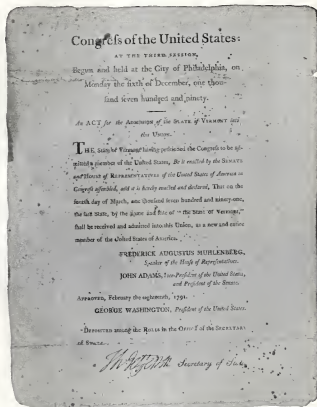 Congreſs of the United States:
AT THE THIRD SESSION,
Begun and held at the City of Philadelphia, on
Monday the ſixth of December, one thou-
ſand ſeven hundred and ninety.
An ACT for the ADMISSION of the STATE of VERMONT into
this UNION.
THE State of Vermont having petitioned the Congreſs to be ad-
mitted a member of the United States, Be it enacted by the SENATE
and HOUSE of REPRESENTATIVES of the United States of America in
Congreſs aſſembled, and it is hereby enacted and declared, That on the
fourth day of March, one thouſand ſeven hundred and ninety-one,
the ſaid State, by the name and ſtile of "the State of Vermont,"
ſhall be received and admitted into this Union, as a new and entire
member of the United States of America.
FREDERICK AUGUSTUS MUHLENBERG,
Speaker of the Houſe of Repreſentatives.
JOHN ADAMS, Vice-Preſident of the United States,
and Preſident of the Senate.
APPROVED, February the eighteenth, 1791.
GEORGE WASHINGTON, Preſident of the United States.
DEPOSITED among the ROLLS in the OFFICE of the SECRETARY
of STATE.
Secretary of State